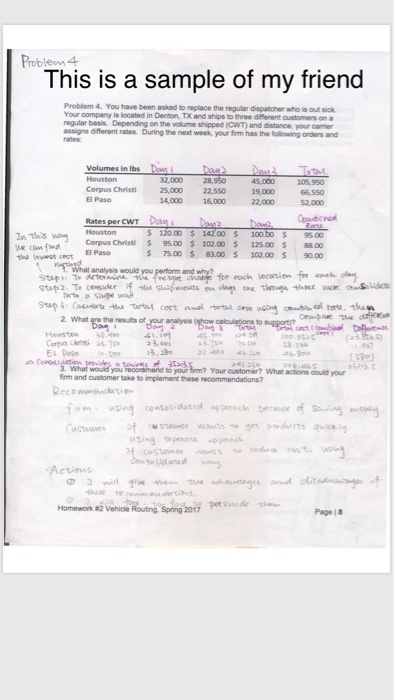 Problem 4
This is a sample of my friend
Problem 4. You have been asked to replace the regular dispatcher who is out sick.
Your company is located in Denton, TX and ships to three different customers on a
regular basis. Depending on the volume shipped (CWT) and distance, your carrier
assigns different rates. During the next week, your firm has the following orders and
rates:
Volumes in lbs Day 1 Day 2 Day 3 Total
Houston 32,000 28,950 45,000 105,950
Corpus Christi 25,000 22,550 19,000 66,550
El Paso 14,000 16,000 22,000 52,000
Combined
Rates per CWT Day 1 Day 2 Day 3 Rate
Houston $ 120.00 $ 142.00 $ 100.50 $ 95.00
Corpus Christi $ 95.00 $ 102.00 $ 125.00 $ 88.00
El Paso $ 75.00 $ 83.00 $ 102.00 $ 90.00
In this way
we can find
the lowest cost
method
1. What analysis would you perform and why?
Step 1: To determine the freight charge for each location for each day
Step 2: To consider if the shipments on days one through three were
into a single load
Step 3: Calculate the total cost and total cost using combined rate, then
compare the difference
2. What are the results of your analysis (show calculations to support)?
Day 1 Day 2 Day 3 Total Total cost (combined Difference
Houston 38,400 41,109
Corpus Christi 23,750 23,001
El Paso 10,500 13,280
=> Consolidation provides a savings of
3. What would you recommend to your firm? Your customer? What actions could your
firm and customer take to implement these recommendations?
Recommendation
firm: using consolidated approach because of saving money
Customer If customer wants to get products quickly,
using separate approach
If customer wants to reduce cost, using
consolidated way
Actions
① I will give them the advantages and disadvantages of
these recommendations.
② I will to persuade them
Homework #2 Vehicle Routing, Spring 2017 Page | 8